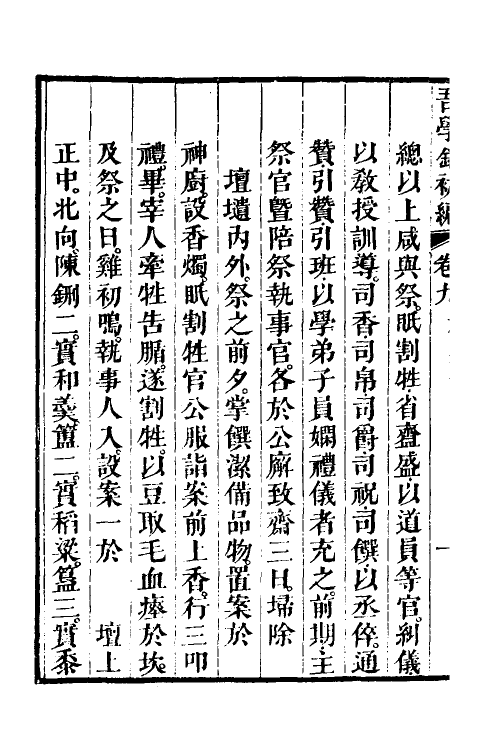 吾學錄初編 卷九 一
總以上咸與祭眂割牲省齍盛以道員等官糾儀
以敎授訓導司香司帛司爵司祝司饌以丞倅通
贊引贊引班以學弟子員嫺禮儀者充之前期主
祭官曁陪祭執事官各於公廨致齋三日埽除
壇壝內外祭之前夕掌饌潔備品物置案於
神廚設香燭眂割牲官公服詣案前上香行三叩
禮畢宰人牽牲告腯遂割牲以豆取毛血瘞於坎
及祭之日雞初鳴執事人入設案一於 壇上
正中北向陳鉶二實和羹簠二實稻粱簋二實黍